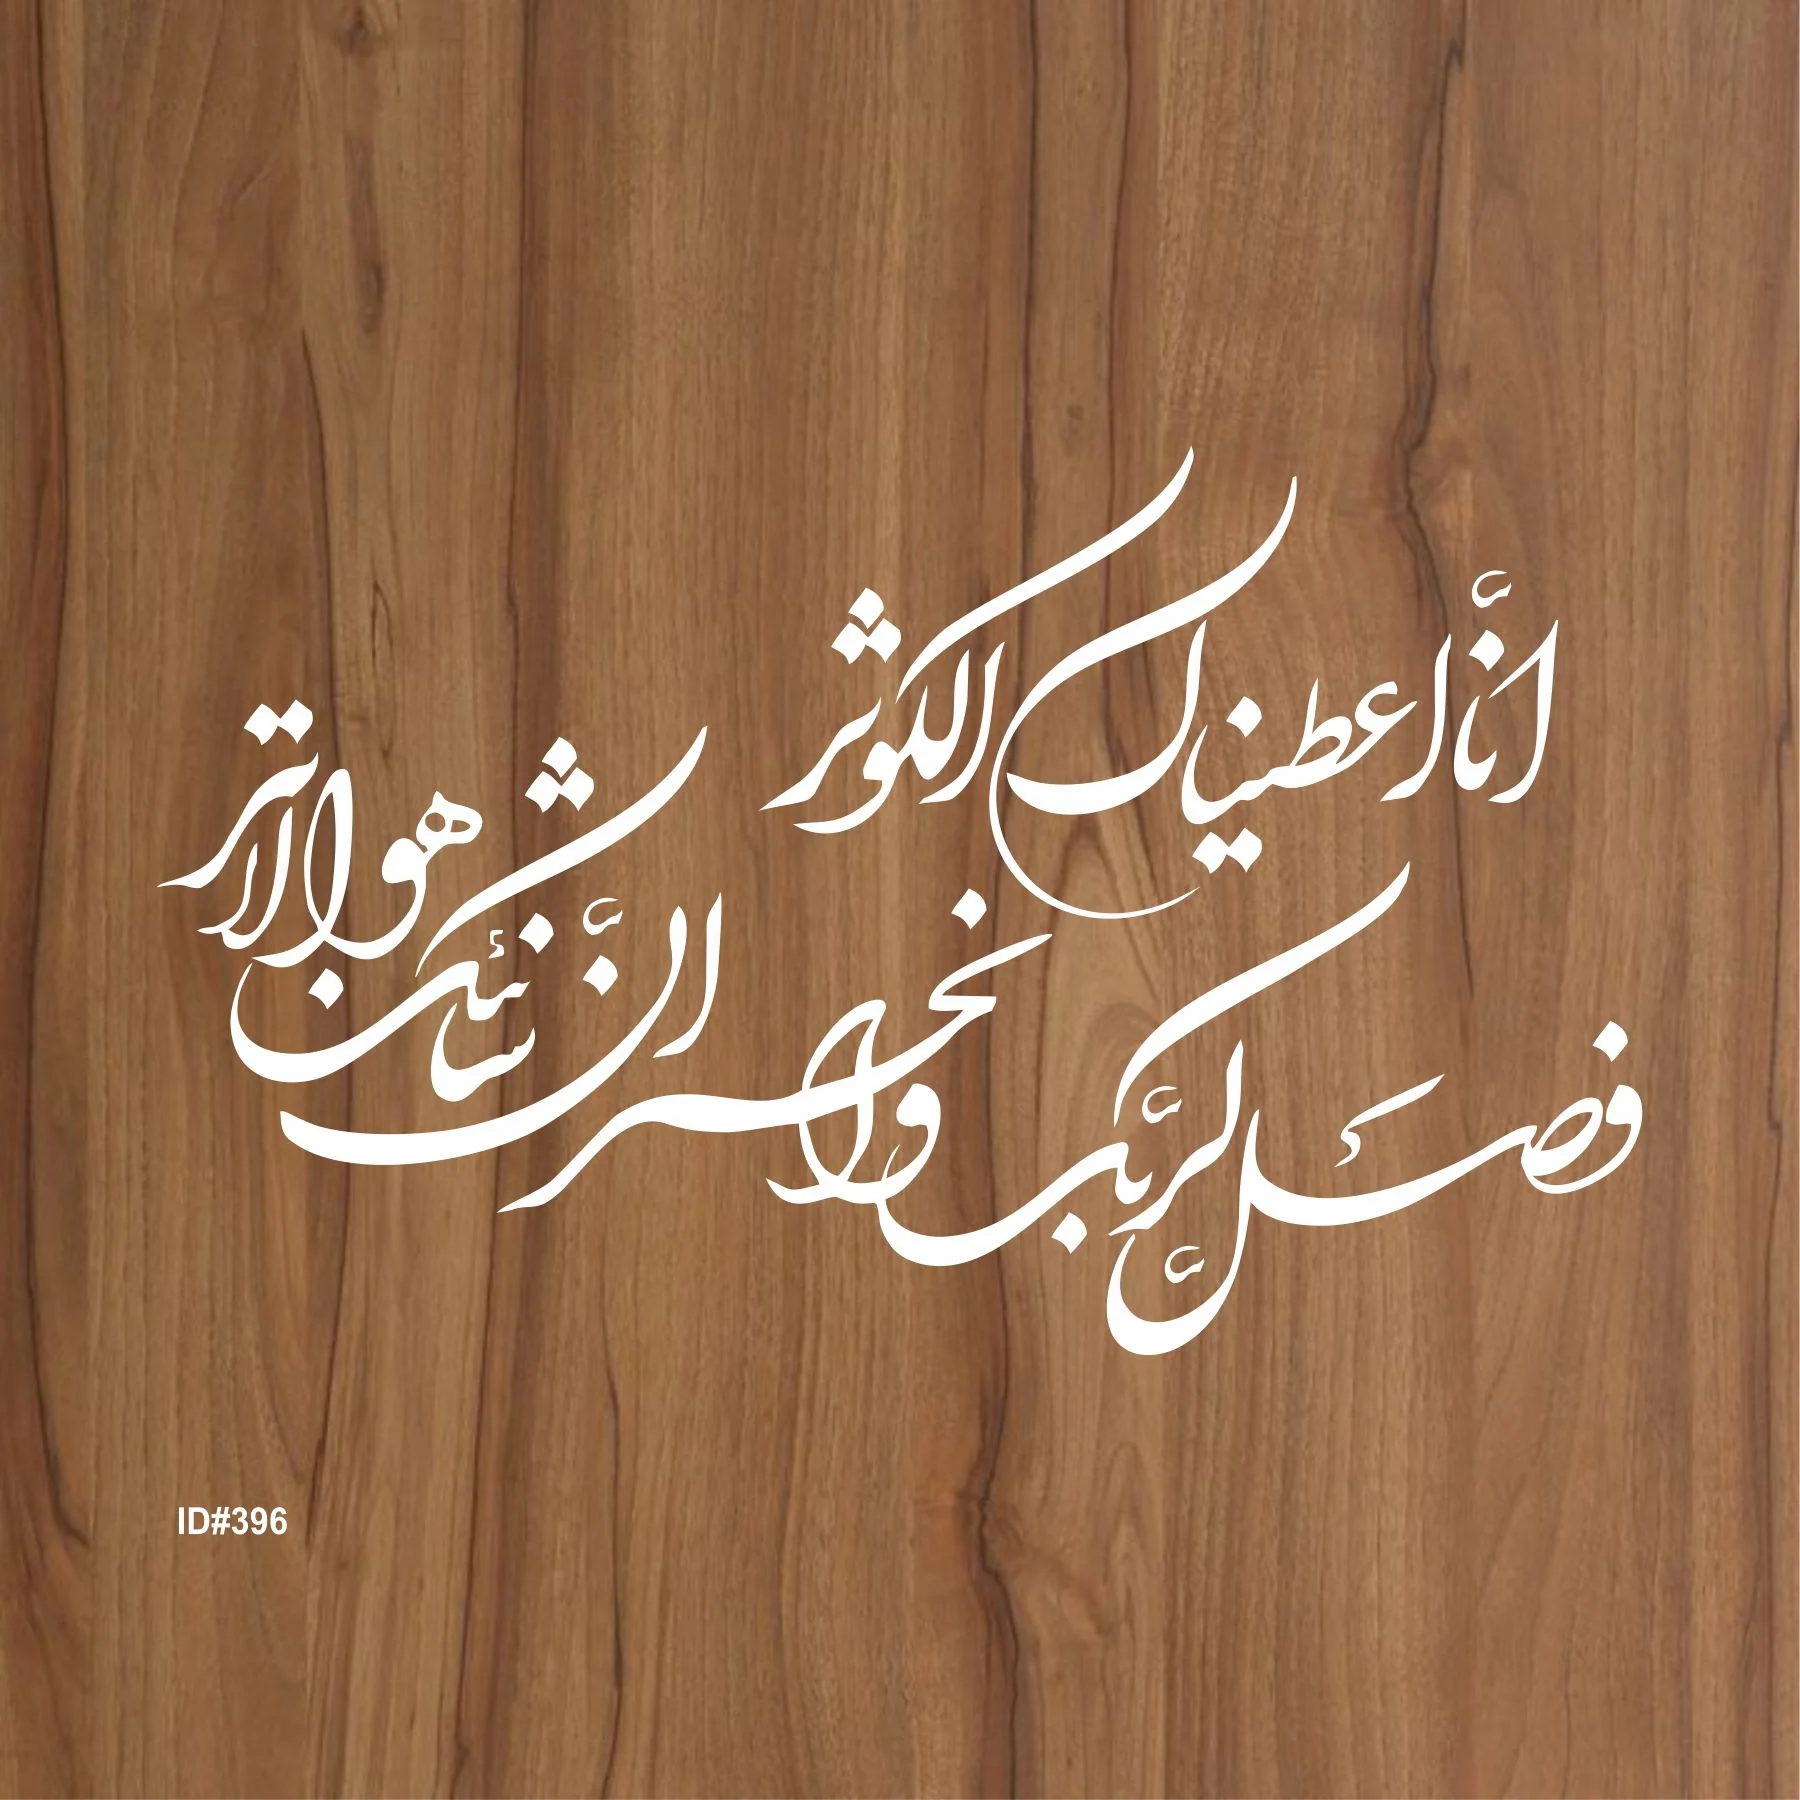 انّا اعطیناک الکوثر
فصَلّ لربّک وانحر
انّ شانئک هوالابتر
ID#396